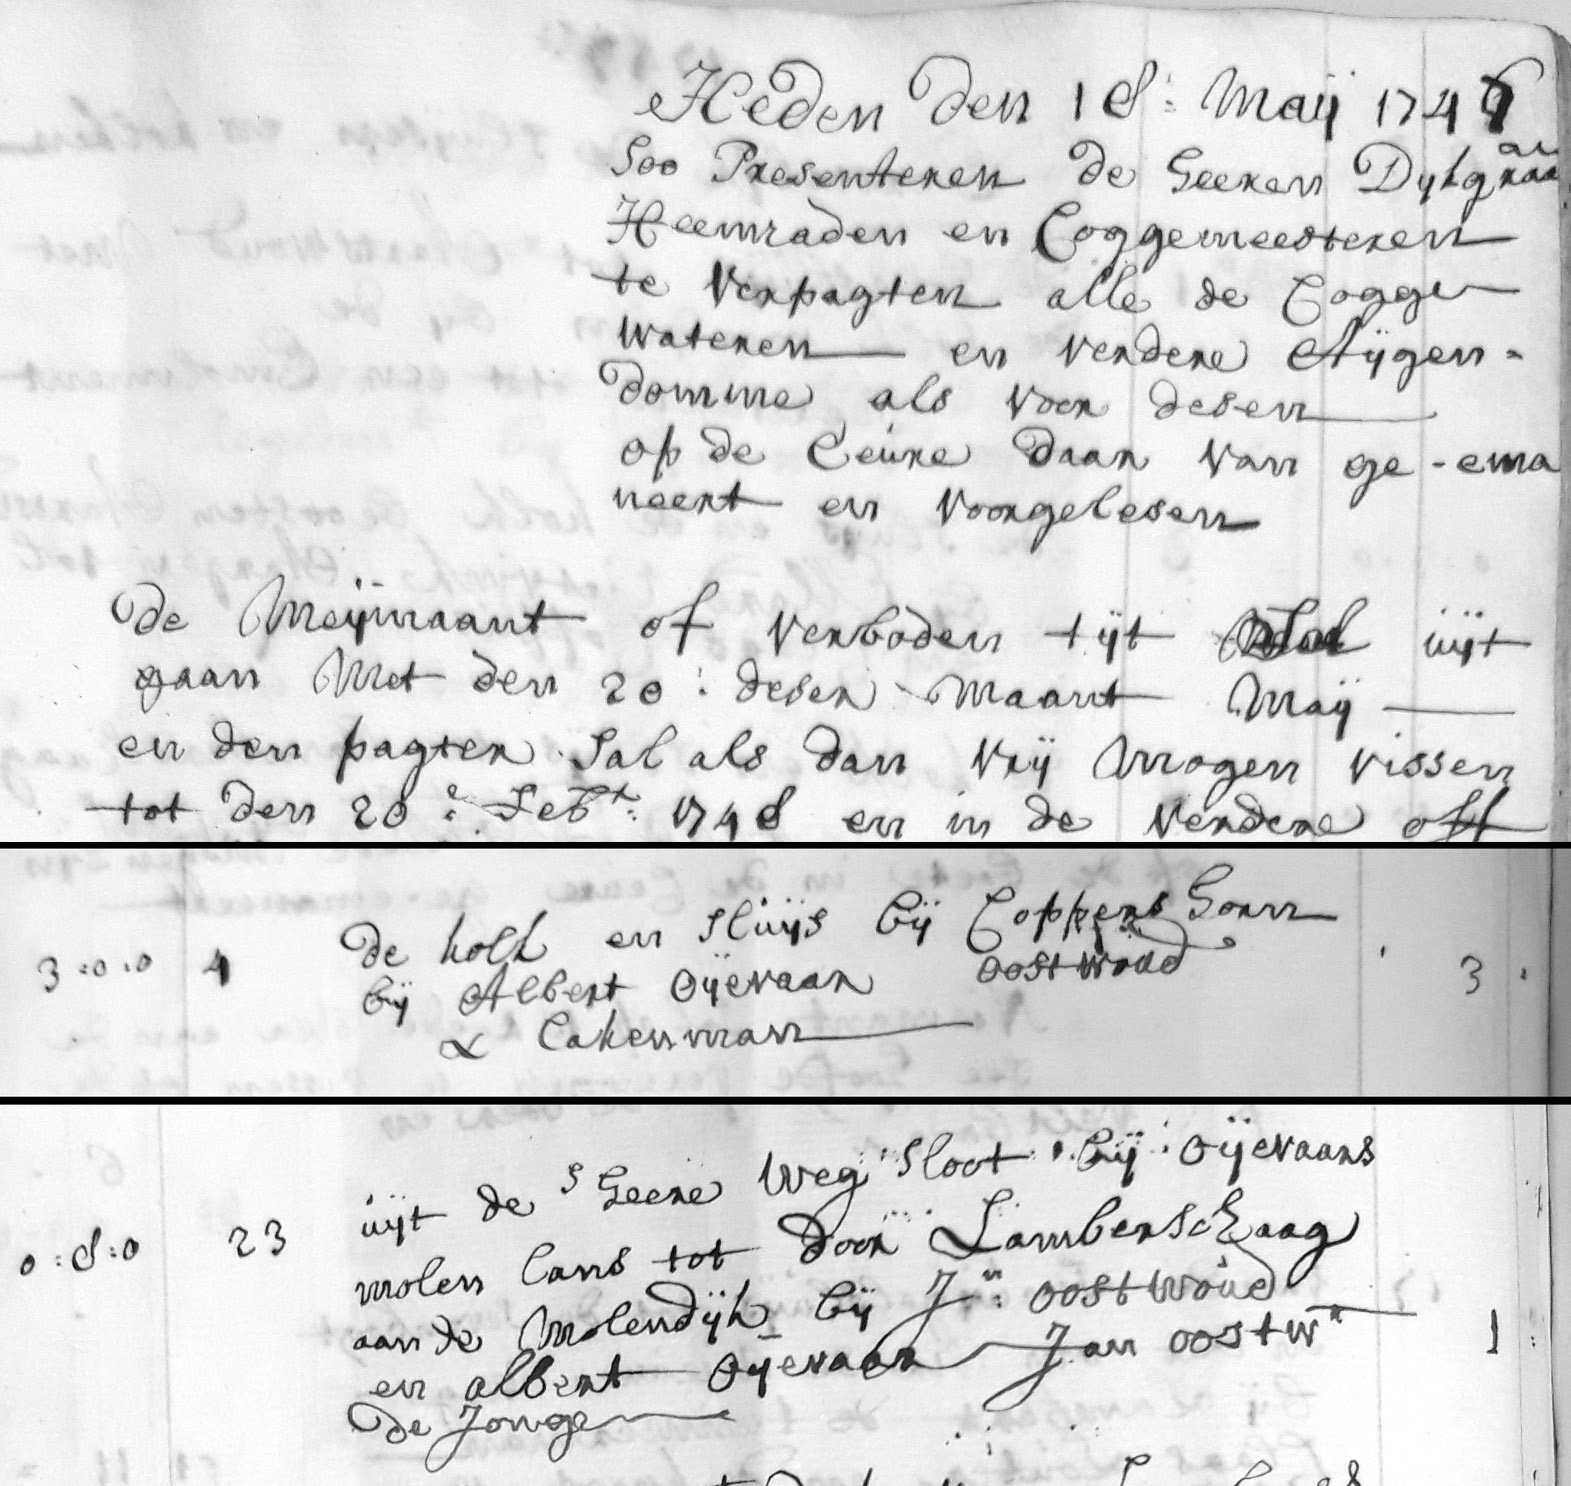 Heden den 18: Maij 1746
Soo Presenteren de Heeren Dykgraa
Heemraden en Coggemeesteren
te Verpagten alle de Cogge
wateren en verdere Aijgen-
domme als voor desen
op de Ceure daar van ge-ema
neert en voorgelesen
De Meijmaant of verboden tijt Sal uijt
gaan Met den 20: deser Maant Maij
en den pagter Sal als dan vrij Mogen vissen
tot den 20e: Febr: 1748 en in de verdere off
3:0:0 4 De kolk en Sluijs bij Coppers Horn
bij Albert Oijevaar Oostwoud 3
& Cakenman
uijt de s Heere Weg Sloot bij Oijevaars
0:8:0 23 molen Lans tot door Lamberschaag
aan de Molendijk bij Jn: Oostwoud
en albert Oijevaar Jan Oostwd 1
De Jonge